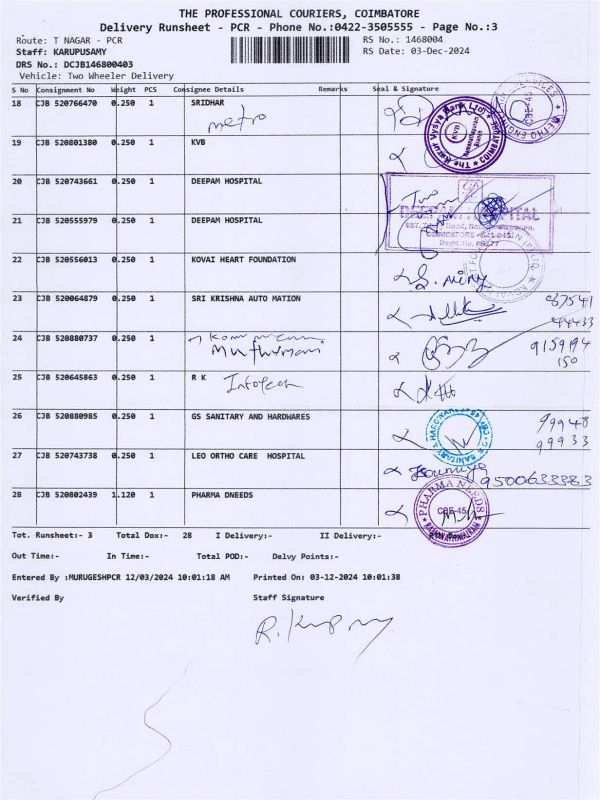 THE PROFESSIONAL COURIERS, COIMBATORE
Delivery Runsheet - PCR - Phone No.:0422-3505555 - Page No.:3
Route: T NAGAR - PCR RS No.: 1468004
Staff: KARUPUSAMY RS Date: 03-Dec-2024
DRS No.: DCJB146800403
Vehicle: Two Wheeler Delivery
S No Consignment No Weight PCS Consignee Details Remarks Seal & Signature
18 CJB 520766470 0.250 1 SRIDHAR
metro
19 CJB 520801380 0.250 1 KVB
20 CJB 520743661 0.250 1 DEEPAM HOSPITAL
DEEPAM HOSPITAL
21 CJB 520555979 0.250 1 DEEPAM HOSPITAL
22 CJB 520556013 0.250 1 KOVAI HEART FOUNDATION
23 CJB 520064879 0.250 1 SRI KRISHNA AUTO MATION
87541
44433
24 CJB 520880737 0.250 1
Muthumani
9159194
150
25 CJB 520645863 0.250 1 R K Infotech
26 CJB 520880985 0.250 1 GS SANITARY AND HARDWARES
99948
99933
27 CJB 520743738 0.250 1 LEO ORTHO CARE HOSPITAL
9500633383
28 CJB 520802439 1.120 1 PHARMA DNEEDS
PHARMA NEEDS
CBE-45
Tot. Runsheet:- 3 Total Dox:- 28 I Delivery:- II Delivery:-
Out Time:- In Time:- Total POD:- Delvy Points:-
Entered By :MURUGESHPCR 12/03/2024 10:01:18 AM Printed On: 03-12-2024 10:01:38
Verified By Staff Signature